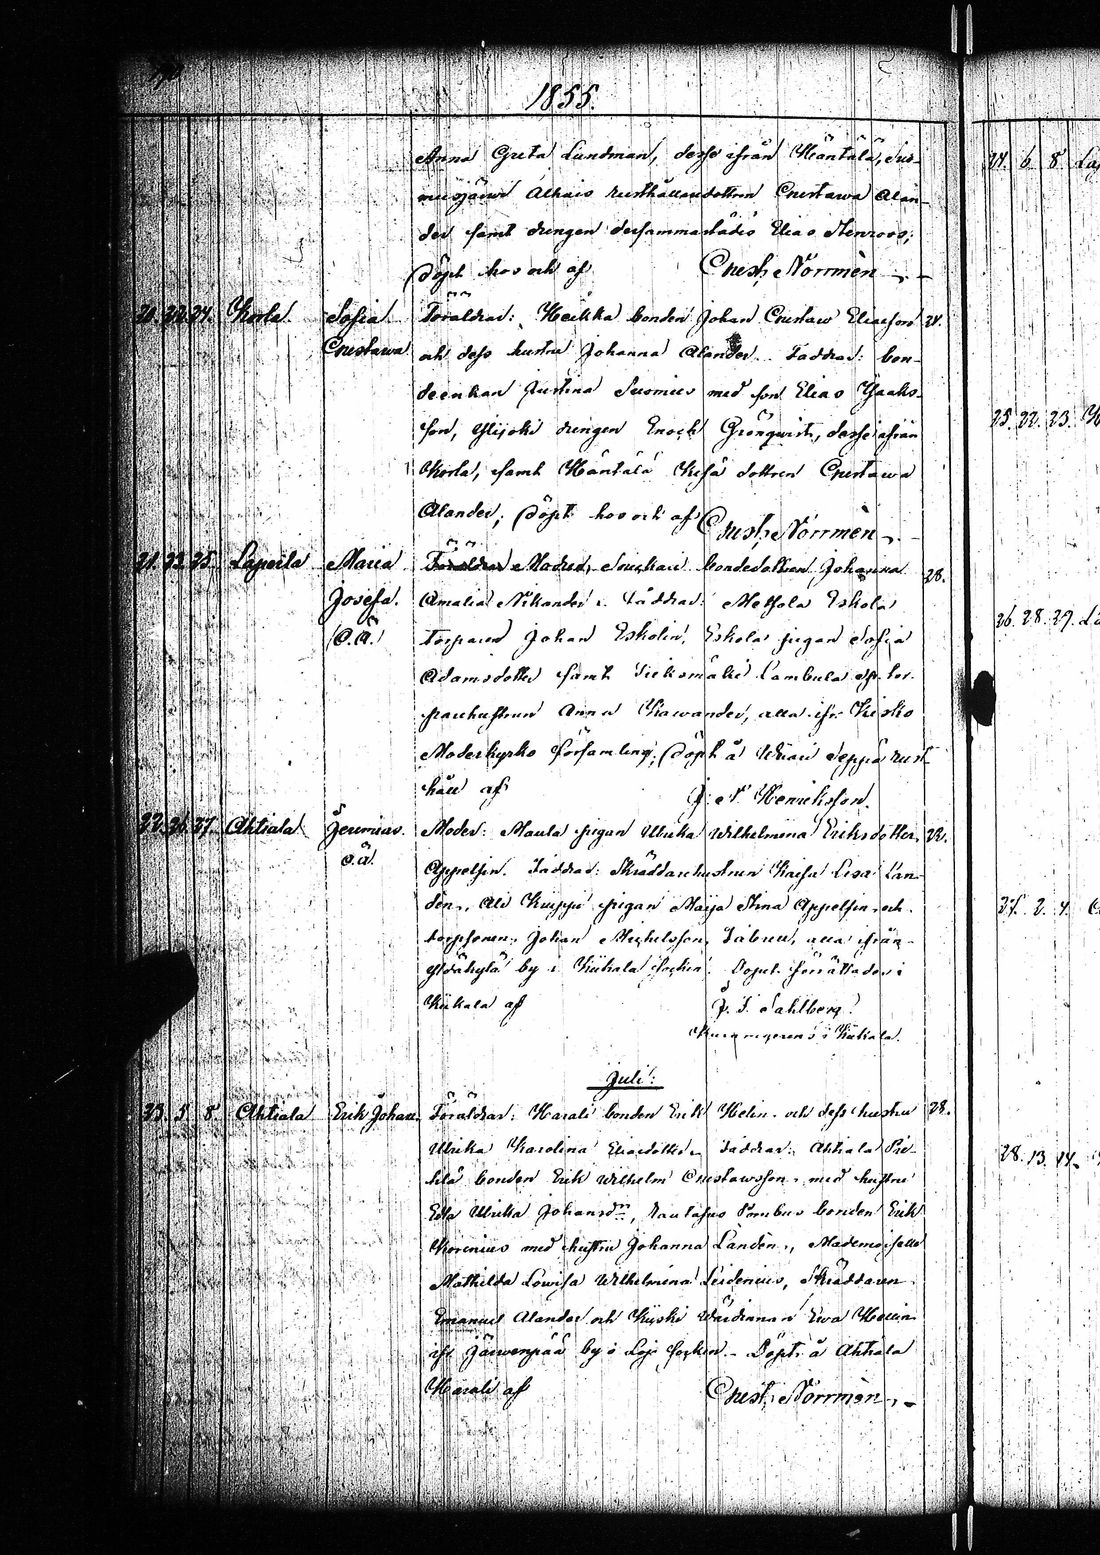 1855.
Anna Greta Lundman, desse ifrån Häntälä, Suo-
musjärvi Alhais rusthållaredottren Gustawa Alan-
der samt drengen dersammastädes Elias Stenroos;
Döpt hos och af Gust. Norrmèn
20. 22. 24. Korla Sofia Föräldrar: Heikka bonden Johan Gustaw Eliasson 24.
Gustawa och dess hustru Johanna Alander. Faddrar: bon-
deenkan Justina Suomius med son Elias Isaaks-
son, Ylijoki drengen Enock Grönqwist, desse ifrån
Korla, samt Häntälä Kesä dottren Gustawa
Alander; Döpt hos och af Gust. Norrmèn
21. 23. 25. Laperla Maria Föräldrar Moder, bondedottren Johanna 28.
Josefa. Amalia Nikander. Faddrar: Metsola Eskola
(o.ä.) torparen Johan Eskolin, Eskola pigan Sofia
Adamsdotter samt Lambula
Anna Kawander, alla ifr. Kisko
Moderkyrko församling; Döpt å Seppä rust-
håll af J. N. Henriksson.
22. 26. 27. Ahtiala Jeremias. Moder: Maula pigan Ulrika Wilhelmina Eriksdotter 22.
o.ä. Appelsin. Faddrar: Skräddarehustrun Kaisa Lisa Lan-
dèn, Ali Knuppi pigan Maija Stina Appelsin och
torpsonen Johan Michelsson alla ifrån
by i Kiikala socken. Dopet förrättades i
Kiikala af J. F. Sahlberg
i Kiikala.
Juli:
23. 5. 8. Ahtiala Erik Johan. Föräldrar: Harali bonden Erik Helin och dess hustru 28.
Ulrika Karolina Eliaedotter. Faddrar: Ahtiala Pie-
tilä bonden Erik Wilhelm Gustawsson med hustru
Eda Ulrika Johansdr, bonden Erik
Korenius med hustru Johanna Landèn, Mademoiselle
Mathilda Lowisa Wilhelmina Leidenius, Skräddaren
Emanuel Alander och Kiiski Wärdinnan Ewa Helin
ifr. Järwenpää by i Lojo socken. Döpt å Ahtiala
Harali af Gust. Norrmèn
24. 6. 8
25. 22. 23.
26. 28. 29.
27. 2. 4.
28. 13. 14.